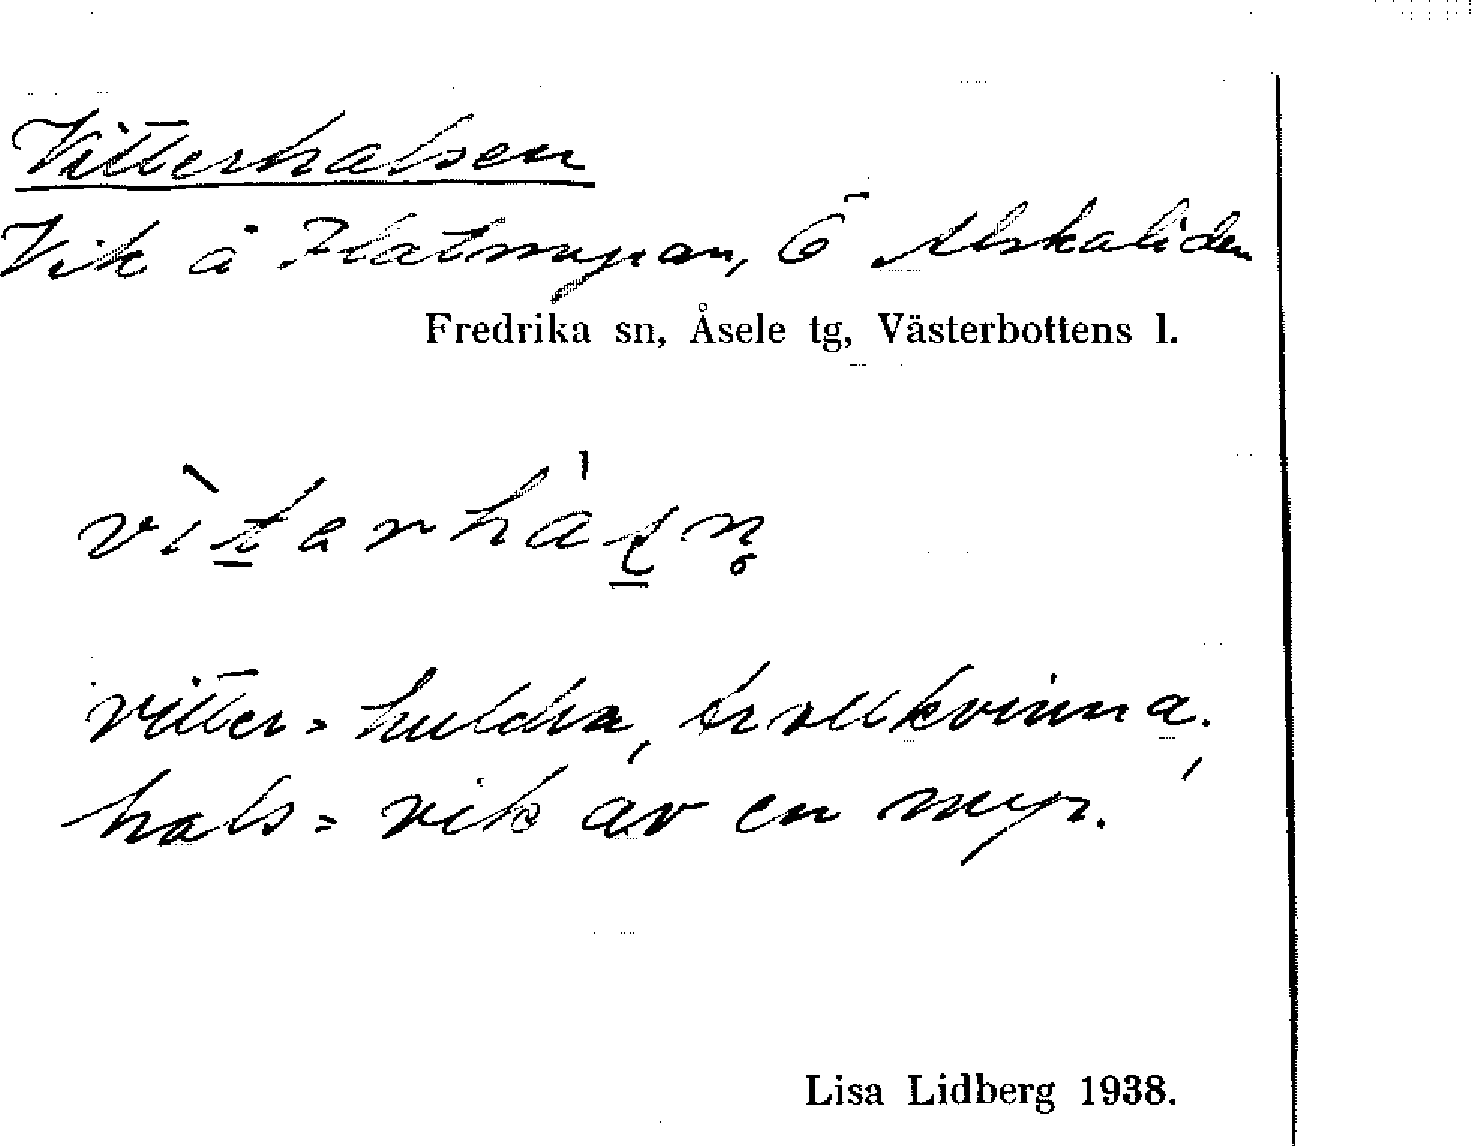 Vitterhalsen
Vik å Flatmyran, Ö Alskaliden
Fredrika sn, Åsele tg, Västerbottens l.
vitter = huldra, trollkvinna,
hals = vik av en myr.
Lisa Lidberg 1938.